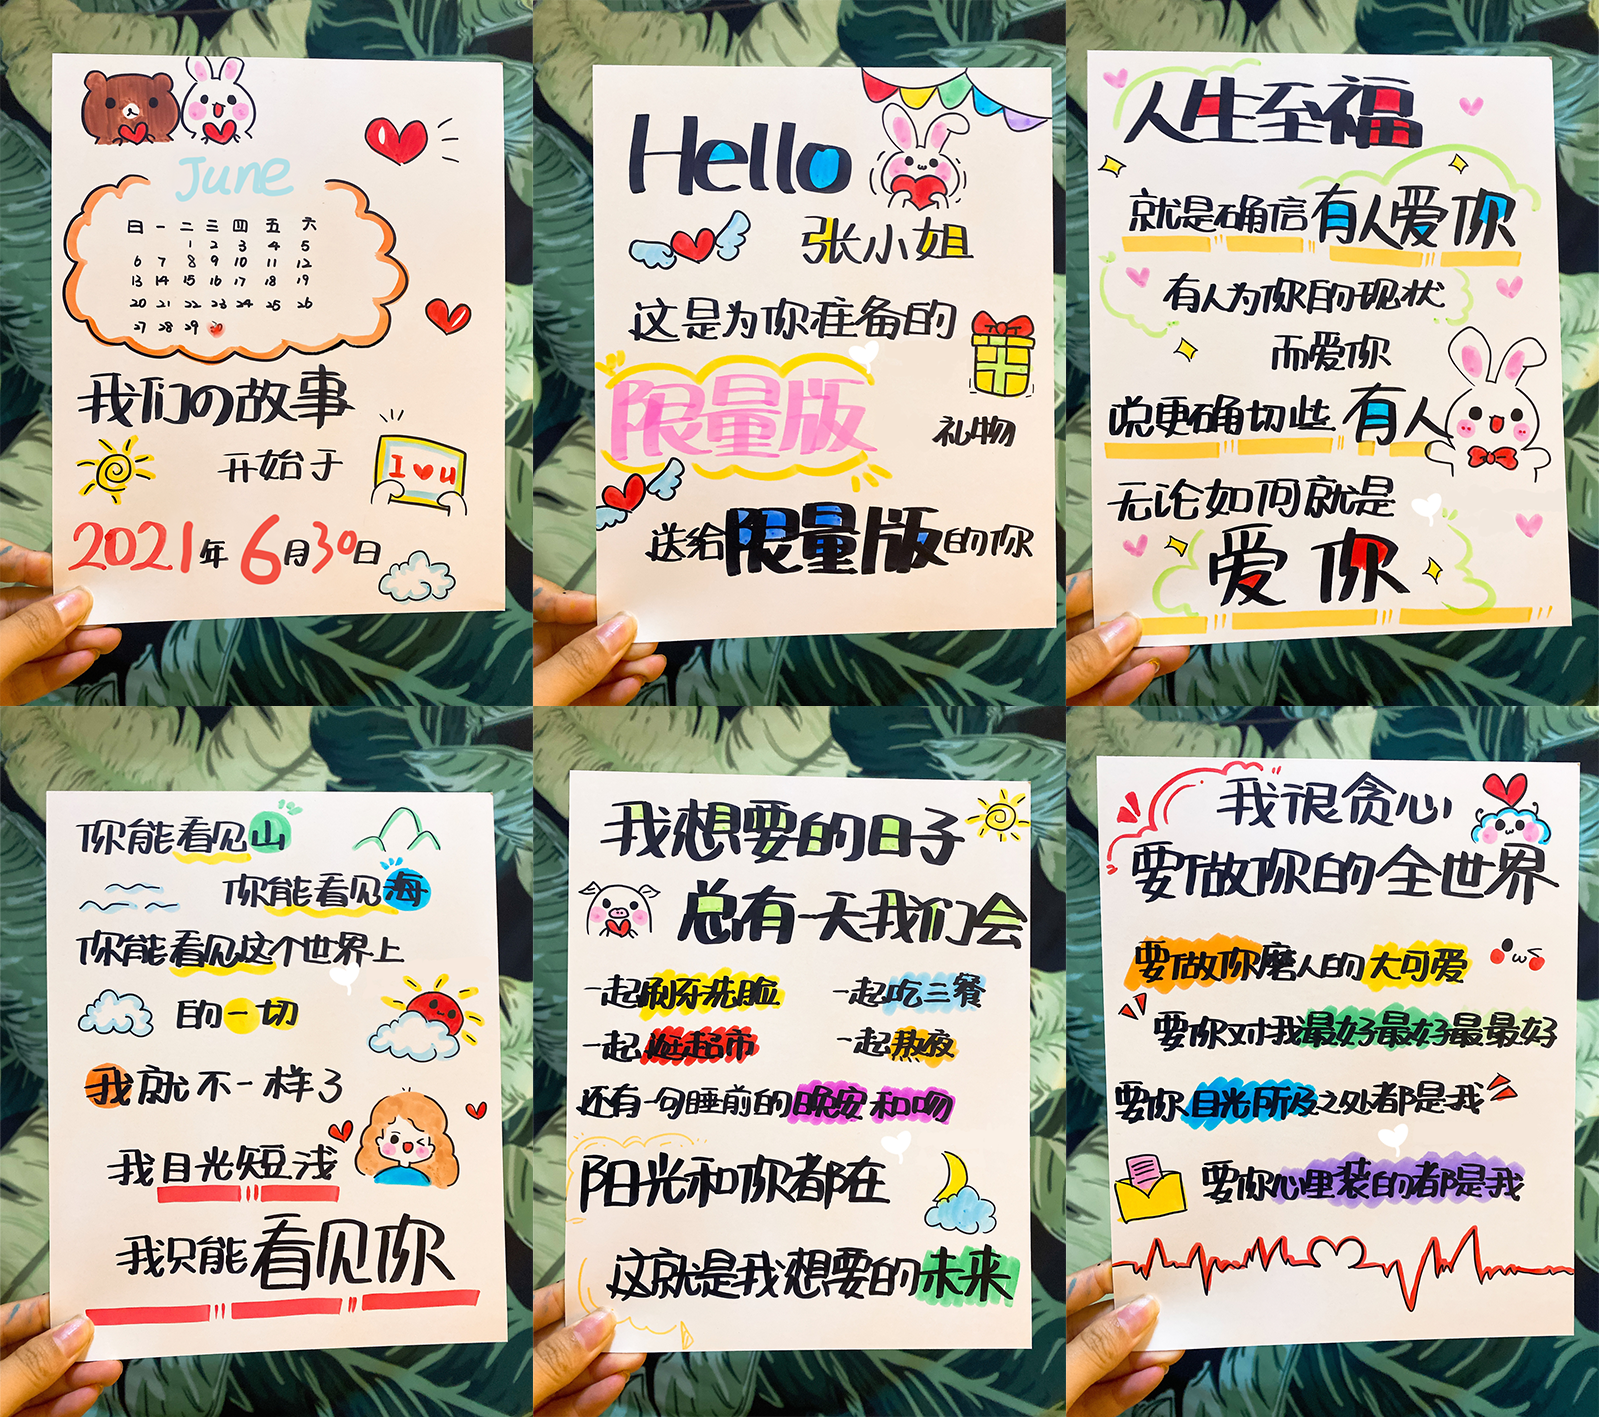 June
日 一 二 三 四 五 六
1 2 3 4 5
6 7 8 9 10 11 12
13 14 15 16 17 18 19
20 21 22 23 24 25 26
27 28 29 30
我们の故事
开始于
I ♥ u
2021年6月30日
Hello
张小姐
这是为你准备的
限量版
礼物
送给限量版的你
人生至福
就是确信有人爱你
有人为你的现状
而爱你
说更确切些 有人
无论如何就是
爱你
你能看见山
你能看见海
你能看见这个世界上
的一切
我就不一样了
我目光短浅
我只能看见你
我想要的日子
总有一天我们会
一起刷牙洗脸 一起吃三餐
一起逛超市 一起熬夜
还有一句睡前的晚安和吻
阳光和你都在
这就是我想要的未来
我很贪心
要做你的全世界
要做你磨人的大可爱
要你对我最好最好最最好
要你目光所及之处都是我
要你心里装的都是我